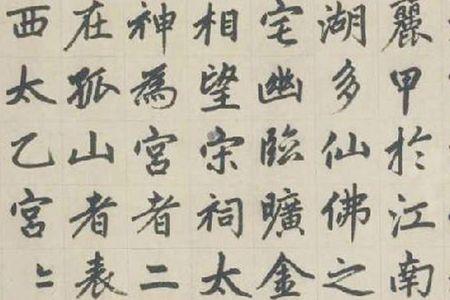 麗甲於江南
湖多仙佛之
宅幽臨曠金
相望宋祠太
神為宮者二
在孤山者表
西太乙宮〻